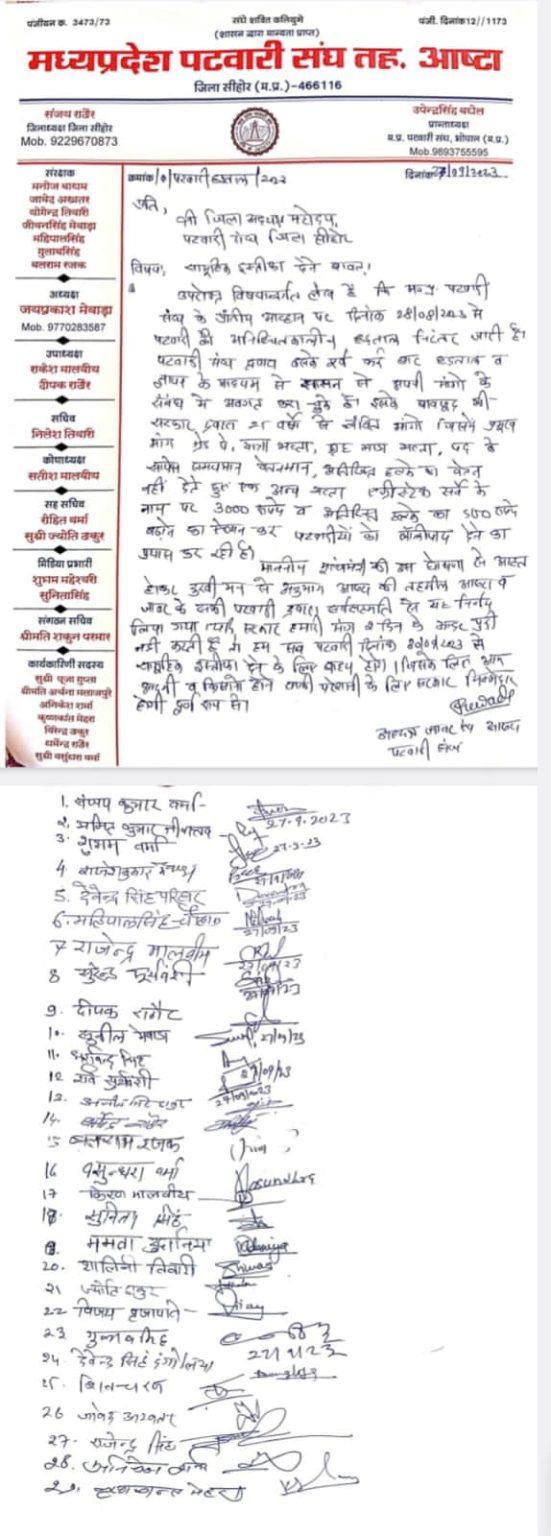 पंजीयन क. 3473/73
संघे शक्ति कलियुगे
(शासन द्वारा मान्यता प्राप्त)
पंजी. दिनांक12//1173
मध्यप्रदेश पटवारी संघ तह. आष्टा
जिला सीहोर (म.प्र.)-466116
संजय राठौर
जिलाध्यक्ष जिला सीहोर
Mob. 9229670873
उपेन्द्रसिंह बघेल
प्रान्ताध्यक्ष
म.प्र. पटवारी संघ, भोपाल (म.प्र.)
Mob.9893755595
संरक्षक
मनोज बाथम
जावेद अख्तर
योगेन्द्र तिवारी
जीवनसिंह मेवाड़ा
महिपालसिंह
गुलाबसिंह
बलराम रजक
अध्यक्ष
जयप्रकाश मेवाड़ा
Mob. 9770283587
उपाध्यक्ष
राकेश मालवीय
दीपक राठौर
सचिव
निलेश तिवारी
कोषाध्यक्ष
सतीश मालवीय
सह सचिव
रोहित वर्मा
सुश्री ज्योति ठाकुर
मिडिया प्रभारी
शुभम महेश्वरी
सुनितासिंह
संगठन सचिव
श्रीमति शकुन परमार
कार्यकारिणी सदस्य
सुश्री पूजा गुप्ता
श्रीमति अर्चना
अनिकेश शर्मा
कृष्णकांत मेहरा
विरेन्द्र ठाकुर
धर्मेन्द्र राठौर
सुश्री वसुंधरा वर्मा
क्रमांक/0/पटवारी हड़ताल/2023
दिनांक 27/09/2023
प्रति,
श्री जिला अध्यक्ष महोदय,
पटवारी संघ जिला सीहोर
विषय: सामूहिक इस्तीफा देने बाबत।
उपरोक्त विषयान्तर्गत लेख है कि म०प्र० पटवारी
संघ के प्रांतीय आव्हान पर दिनांक 28/08/2023 से
पटवारी की अनिश्चितकालीन हड़ताल निरंतर जारी है।
पटवारी संघ द्वारा इसके पूर्व कई बार हड़ताल व
ज्ञापन के माध्यम से शासन से अपनी मांगो के
संबंध में अवगत करा चुके है। इसके बावजूद भी
सरकार द्वारा 25 वर्षो से लंबित मांगो जिसमे प्रमुख
मांग ग्रेड पे, यात्रा भत्ता, गृह भाड़ा भत्ता, पद के
समयमान वेतनमान, अतिरिक्त हल्के का वेतन
नहीं देते हुए एक अन्य भत्ता एग्रीस्टेक सर्वे के
नाम पर 3000 रुपये व अतिरिक्त हल्के का 500 रुपये
बढ़ाने का कर पटवारीयों को लॉलीपॉप देने का
प्रयास कर रही है।
माननीय की इस घोषणा से आहत
होकर दुखी मन से अनुभाग आष्टा की तहसील आष्टा व
जावर के सभी पटवारी द्वारा सर्वसम्मति से यह निर्णय
लिया गया सरकार हमारी मांग 2 दिन के अन्दर पुरी
नही करती है तो हम सब पटवारी दिनांक से
सामूहिक इस्तीफा देने के लिए बाध्य होंगे। जिसके लिए आम
आदमी व किसानो होने वाली परेशानी के लिए सरकार जिम्मेदार
होगी पूर्ण रूप से।
अध्यक्ष जावर एवं आष्टा
पटवारी संघ
1. संजय कुमार वर्मा
27-9-2023
2. अमित कुमार
3. शुभम वर्मा
27-9-23
4. राजेशकुमार
5. देवेन्द्र सिंह परिहार
6. महिपालसिंह चौहान
27/09/23
7. राजेन्द्र मालवीय
27/09/23
8. सुरेन्द्र सूर्यवंशी
9. दीपक राठौर
10. सुनील मेवाडा
27/9/23
11. धर्मेन्द्र सिंह
12. रवि सूर्यवंशी
27/09/23
13. सिंह ठाकुर
27/09/2023
14. धर्मेन्द्र राठौर
15. बलराम रजक
16. वसुन्धरा वर्मा
Vasundhra
17. किरण मालवीय
18. सुनिता सिंह
19. ममता
20. शालिनी तिवारी
21. ज्योति ठाकुर
22. विजय प्रजापति
Vijay
23. गुलाबसिंह
24. देवेन्द्र सिंह
25. शिवचरण
26. जावेद अख्तर
27. राजेन्द्र सिंह
28. अनिकेश शर्मा
29. कृष्णकान्त मेहरा